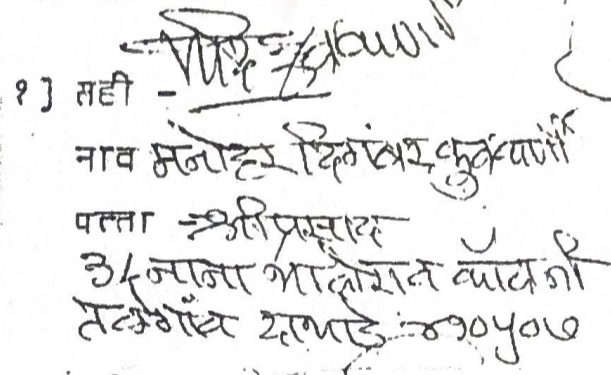 १] सही -
नाव मनोहर दिगंबर कुलकर्णी
पत्ता - श्रीप्रसाद
३८ नाना भालेराव कॉलनी
तळेगाव दाभाडे. ४१०५०७